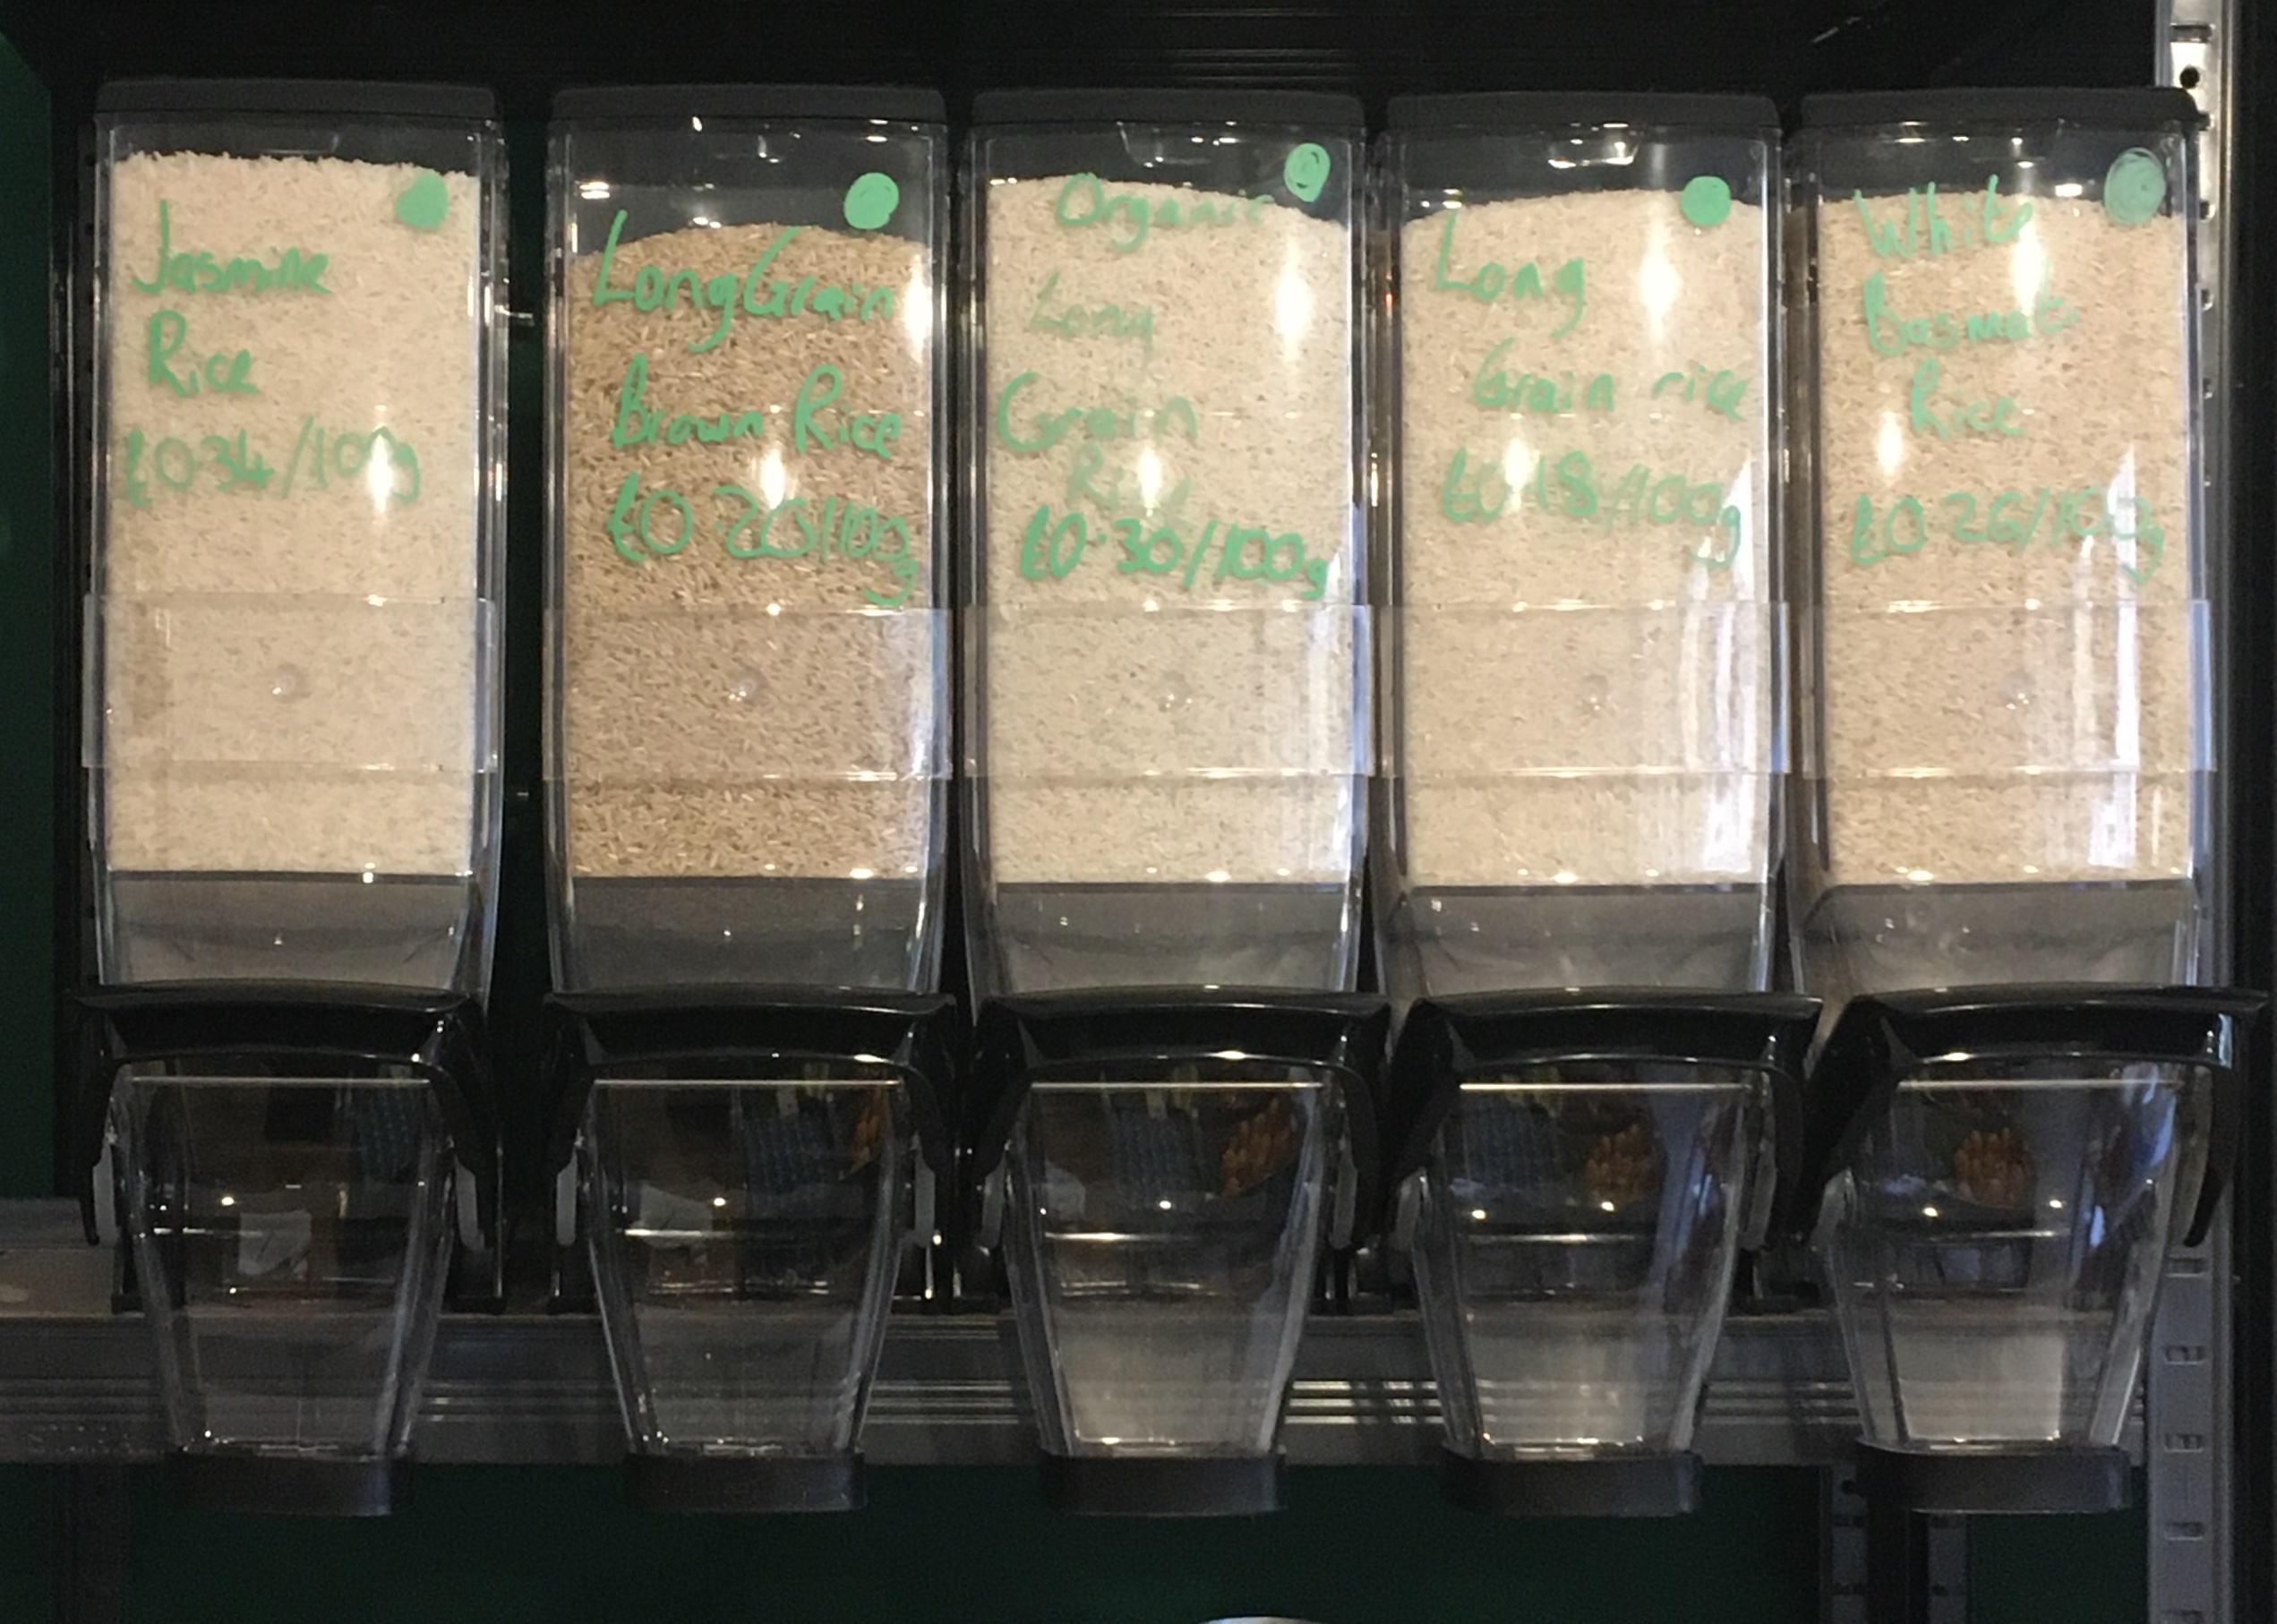 Jasmine
Rice
£0.34/100g
Long Grain
Brown Rice
£0.20/100g
Organic
Long
Grain
Rice
£0.30/100g
Long
Grain rice
£0.18/100g
White
Basmati
Rice
£0.26/100g